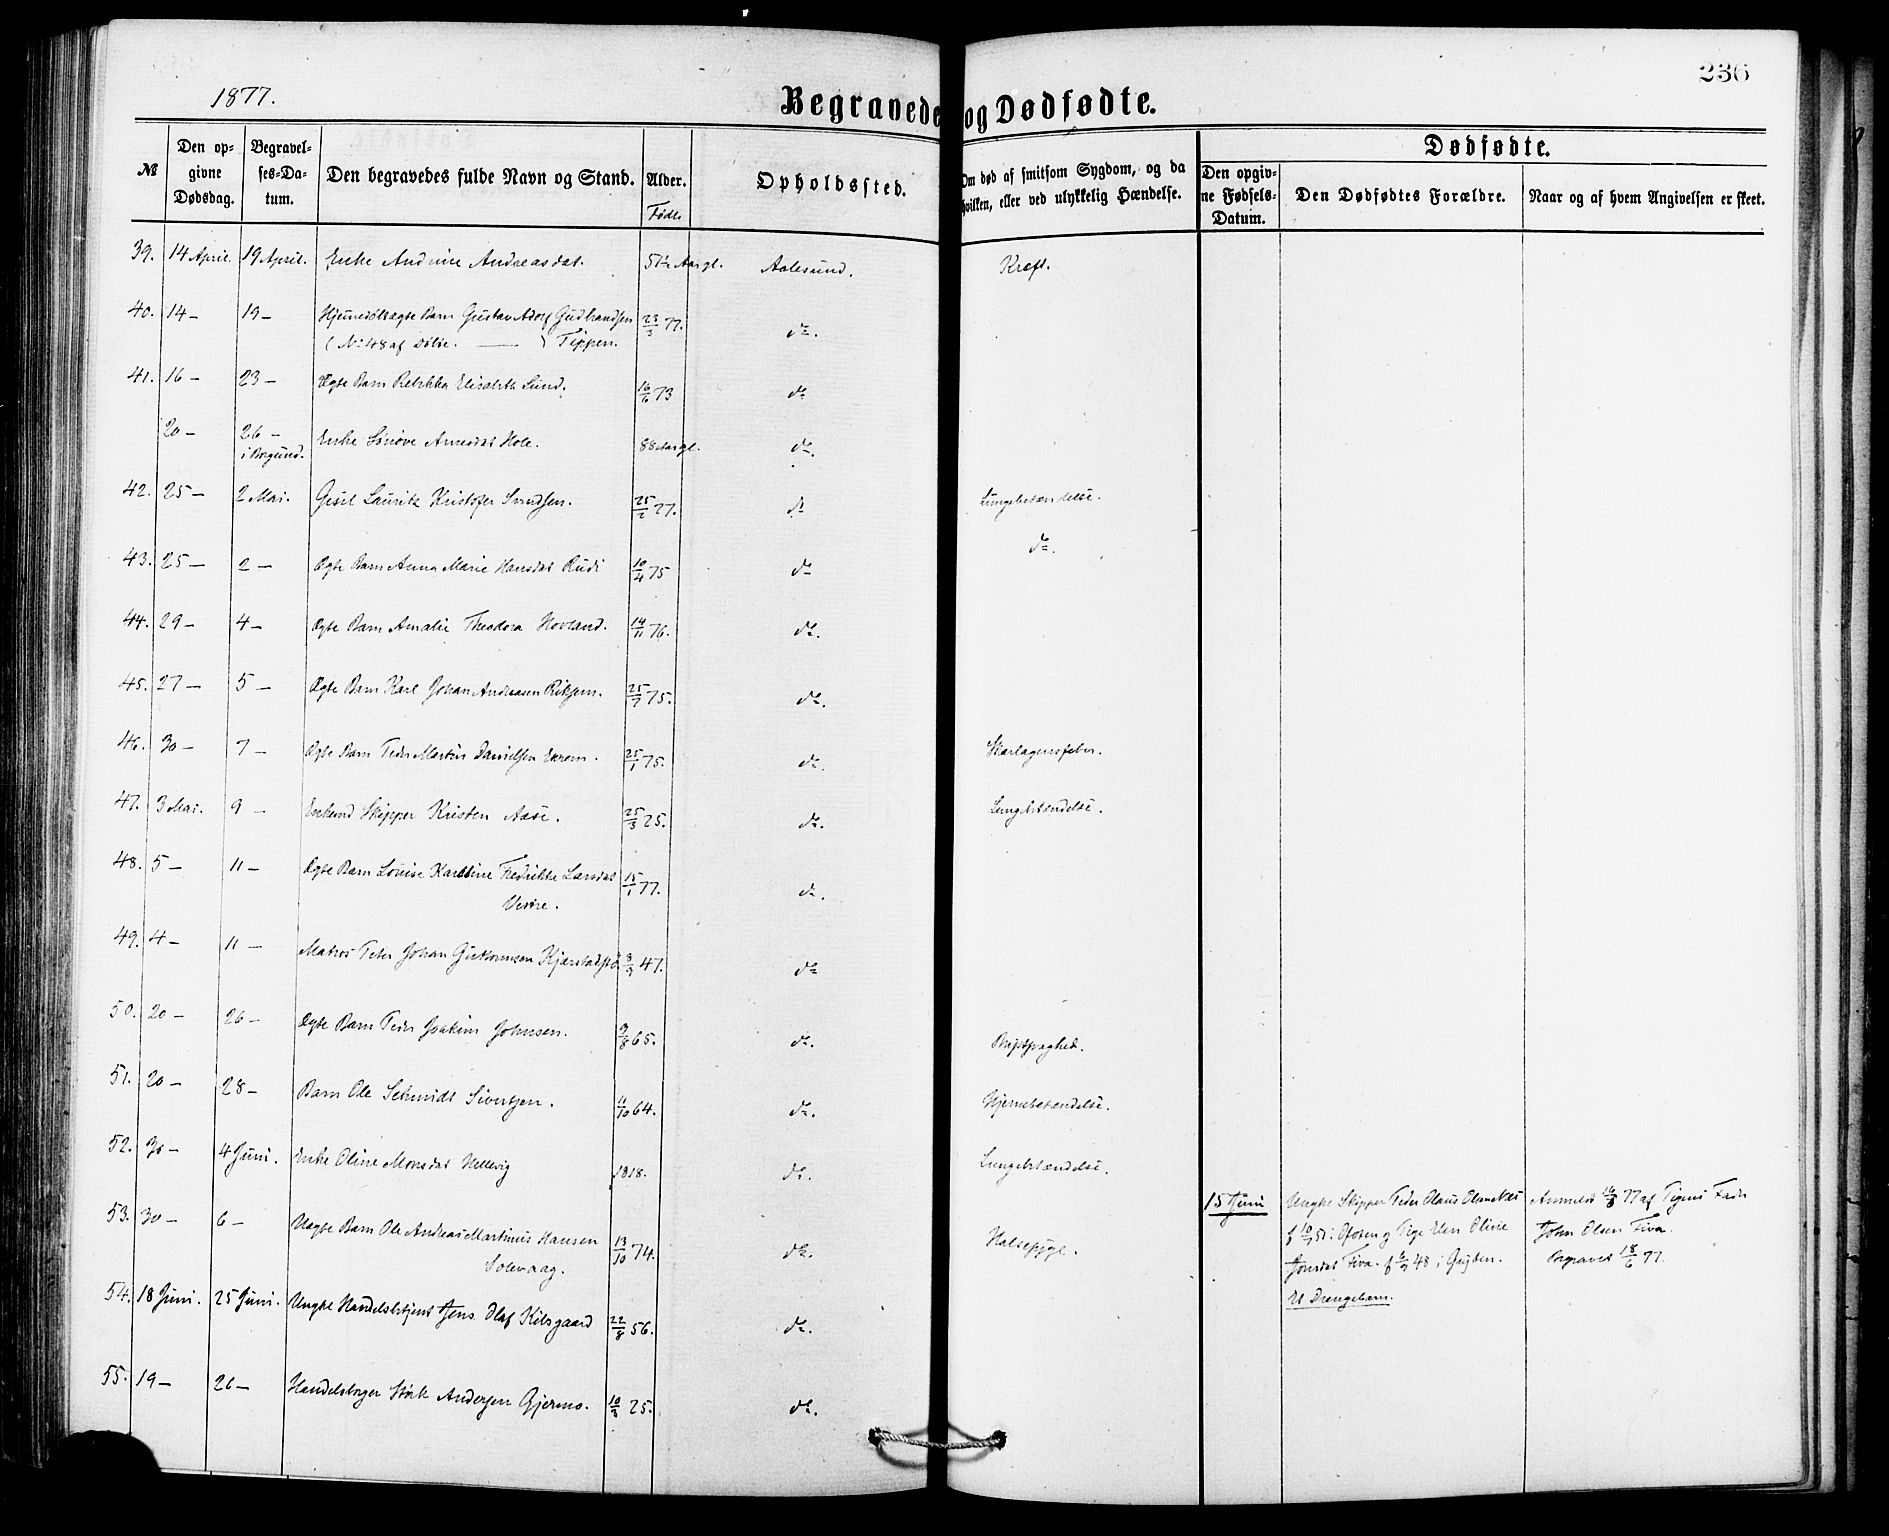 1877.
236
Begravede og Dødfødte.
№
Den opgivne Dødsdag.
Begravelses-Datum.
Den begravedes fulde Navn og Stand.
Alder.
Født
Opholdssted.
Om død af smitsom Sygdom, og da hvilken, eller ved ulykkelig Hændelse.
Dødfødte.
Den opgivne Fødsels-Datum.
Den Dødfødtes Forældre.
Naar og af hvem Angivelsen er skeet.
39. 14 April. 19 April. Enke Andrine Andreasdat. 51½ Aar gl. Aalesund. Kræft.
40. 14 – 19 – Hjemmedøbt ægte Barn Gustav Adolf Gudbrandsen 23/3 77. do.
(No 48 af Døbte. —) Tippen.
41. 16 – 23 – Ægte Barn Rebekka Elisabeth Lund. 16/6 73 do
20 – 26 – Enke Synøve Arnesdat Hole. 88 Aar gl. do.
i Borgund.
42. 25 – 2 Mai. Gesel Lauritz Kristofer Svendsen. 25/2 27. do Lungebetændelse.
43. 25 – 2 – Ægte Barn Anna Marie Hansdat Rudi 10/4 75 do do.
44. 29 – 4 – Ægte Barn Amalie Theodora Hovland. 14/11 76. do.
45. 27 – 5 – Ægte Barn Karl Johan Andreasen 25/7 75. do.
46. 30 – 7 – Ægte Barn Peder Martin Danielsen 25/1 75. do. Skarlagensfeber.
47. 3 Mai. 9 – Enkemd Skipper Kristen Aase. 25/3 25. do. Lungebetændelse.
48. 5 – 11 – Ægte Barn Louise Karoline Fredrikke Larsdat 15/1 77. do.
Vestre.
49. 4 – 11 – Matros Peter Johan Guttormsen 8/9 47. do
50. 20 – 26 – Ægte Barn Peder Joakim Johnsen. 9/8 65. do. Brystsvaghed.
51. 20 – 28 – Barn Ole Schmidt Sivertsen. 11/10 64. do. Hjernebetændelse.
52. 30 – 4 Juni. Enke Oline Monsdat Hellevig 1818. do. Lungebetændelse.
53. 30 – 6 – Uægte Barn Ole Andreas Martinus Hansen 13/10 74. do. Halssyge.
Solevaag.
15 Juni Ungke Skipper Peder Olaus
f 10/7 51. i og Pige Elen Oline
Jonsdat Fiva. f 6/9 48 i Grytten.
Et Drengebarn.
Anmeldt 16/6 77 af Pigens Fader
John Olsen Fiva.
Begravet 18/6 77.
54. 18 Juni. 25 Juni. Ungke Handelsbetjent Jens Olaf Kilsgaard 22/8 56. do.
55. 19 – 26 – Handelsborger Størk Andersen Gjermo. 10/3 25. do.